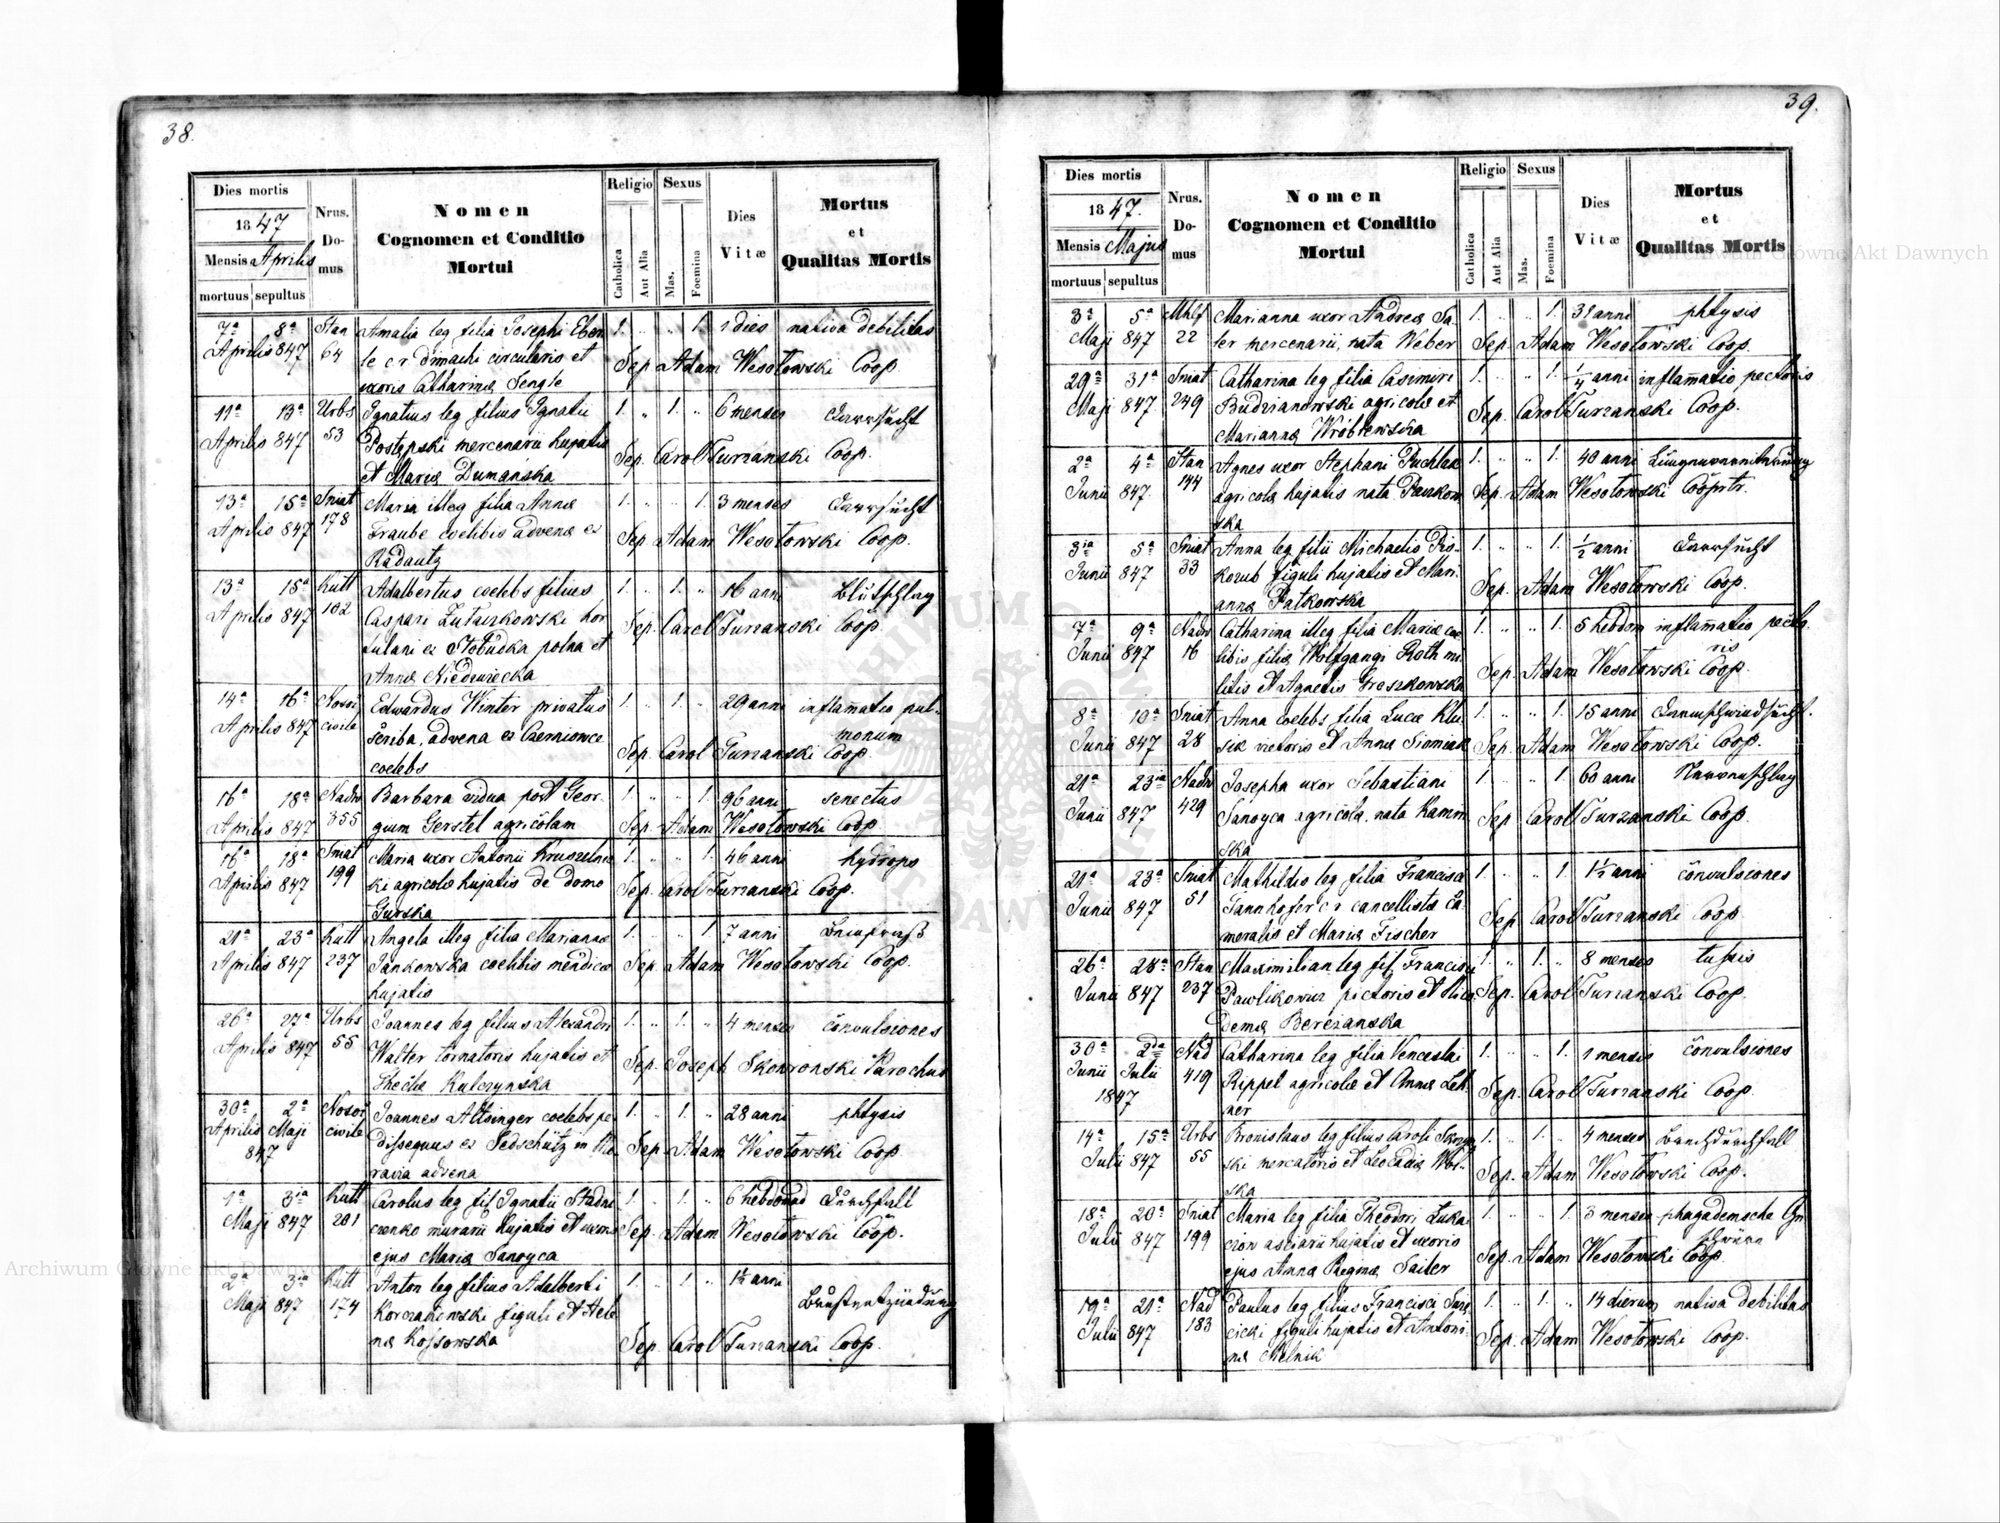 38.
Dies mortis
1847
Mensis Aprilis
mortuus sepultus
Nrus. Domus
Nomen
Cognomen et Conditio
Mortui
Religio
Catholica
Aut Alia
Sexus
Mas.
Foemina
Dies
Vitæ
Mortus
et
Qualitas Mortis
7a 8a Stan Amalia leg filia Josephi Eben 1. „ „ 1. 1 dies nativa debilitas
Aprilis 847 64 le c. r. circularis et Sep. Adam Wesołowski Coop.
uxoris Catharinæ Sengle
11a 13a Urbs Ignatius leg filius Ignatii 1. „ 1. „ 6 menses Darrsucht
Aprilis 847 53 Postępski mercenarii hujatis Sep. Carol Turzanski Coop.
et Mariæ Dumańska
13a 15a Sniat Maria illeg filia Annæ 1. „ „ 1. 3 menses Darrsucht
Aprilis 847 178 Traube coelibis advenæ ex Sep. Adam Wesołowski Coop.
Radautz
13a 15a Kutt Adalbertus coelebs filius 1. „ 1. „ 16 anni Blutschlag
Aprilis 847 102 Caspari Łutaszkowski hor Sep. Carol Turzanski Coop.
tulani ex Słobudka polna et
Annæ Niedzwiecka
14a 16a Nosoc Edwardus Winter privatus 1. „ 1. „ 29 anni inflamatio pul-
Aprilis 847 civile scriba, advena ex Czerniowce monum
coelebs Sep. Carol Turzanski Coop.
16a 18a Nadw Barbara vidua post Geor- 1. „ „ 1. 96 anni senectus
Aprilis 847 355 gium Gerstel agricolam Sep. Adam Wesołowski Coop
16a 18a Sniat Maria uxor Antonii Kruszelnic 1. „ „ 1. 46 anni hydrops
Aprilis 847 199 ki agricolæ hujatis de domo Sep. Carol Turzanski Coop.
Gurska
21a 23a Kutt Angela illeg filia Mariannæ 1. „ „ 1. 7 anni
Aprilis 847 237 Jankowska coelibis mendicæ Sep. Adam Wesołowski Coop.
hujatis
26a 27a Urbs Joannes leg filius Alexandri 1. „ 1. „ 4 menses convulsiones
Aprilis 847 55 Walter tornatoris hujatis et Sep. Joseph Skowronski Parochus
Theclæ Kulczynska
30a 2a Nosoc Joannes Altsinger coelebs pe 1. „ 1. „ 28 anni phtysis
Aprilis Maji civile dissequus ex Tedschütz in Mo Sep. Adam Wesołowski Coop.
847 ravia advena
1a 3ia Kutt Carolus leg fil Ignatii Stadni 1. „ 1. „ 6 hebdomad Durchfall
Maji 847 281 czenko murarii hujatis et uxoris Sep. Adam Wesołowski Coop.
ejus Mariæ Sanoyca
2a 3ia Kutt Anton leg filius Adalberti 1. „ 1. „ 1½ anni Brustentzündung
Maji 847 174 Korczakowski figuli et Hele
næ Kossowska Sep. Carol Turzanski Coop.
39.
Dies mortis
1847.
Mensis Majus
mortuus sepultus
Nrus. Domus
Nomen
Cognomen et Conditio
Mortui
Religio
Catholica
Aut Alia
Sexus
Mas.
Foemina
Dies
Vitæ
Mortus
et
Qualitas Mortis
3a 5a Mhlf Marianna uxor Andreæ Sa- 1. „ „ 1. 38 anni phtysis
Maji 847 22 ler mercenarii, nata Weber Sep. Adam Wesołowski Coop.
29a 31a Sniat Catharina leg filia Casimiri 1. „ „ 1. ¼ anni inflamatio pectoris
Maji 847. 249 Budzianowski agricolæ et Sep. Carol Turzanski Coop.
Mariannæ Wróblewska
2a 4a Stan Agnes uxor Stephani Puchlak 1. „ „ 1. 40 anni
Junii 847. 144 agricolæ hujatis nata Paszkow Sep. Adam Wesołowski Cooprtr.
ska
3ia 5a Sniat Anna leg filii Michaelis Pis- 1. „ „ 1. ½ anni Darrsucht
Junii 847 33 kozub figuli hujatis et Mari- Sep. Adam Wesołowski Coop.
annæ Patkowska
7a 9a Nadw Catharina illeg filia Mariæ coe 1. „ „ 1. 5 hebdom inflamatio pecto-
Junii 847 16 libis filiæ Wolfgangi Roth mi- ris
litis et Agnetis Groszkowska Sep. Adam Wesołowski Coop.
8a 10a Sniat Anna coelebs filia Lucæ Klu 1. „ „ 1. 15 anni Darmschwindsucht.
Junii 847 28 sik victoris et Annæ Siomiak Sep. Adam Wesołowski Coop.
21a 23ia Nadw Josepha uxor Sebastiani 1. „ „ 1. 60 anni Nervenschlag
Junii 847 429 Sanoyca agricolæ nata Kamin Sep. Carol Turzanski Coop.
ska
21a 23a Sniat Mathildis leg filia Francisci 1. „ „ 1. 1½ anni convulsiones
Junii 847 51 Tannhofer c. r. cancellistæ Ca Sep. Carol Turzanski Coop
meralis et Mariæ Fischer
26a 28a Stan Maximilian leg fil. Francisci 1. „ 1. „ 8 menses tussis
Junii 847 237 Pawlikowicz pictoris et Nico Sep. Carol Turzanski Coop.
demæ Berezanska
30a 2da Nad Catharina leg filia Venceslai 1. „ „ 1. 1 mensis convulsiones
Junii Julii 419 Rippel agricolæ et Annæ Leh Sep. Carol Turzanski Coop.
1847 ner
14a 15a Urbs Bronislaus leg filius Caroli 1. „ 1. „ 4 menses Brechdurchfall
Julii 847 55 ski mercatoris et Leocadiæ Wol- Sep. Adam Wesołowski Coop.
ska
18a 20a Sniat Maria leg filia Theodori Luka 1. „ „ 1. 3 menses phagademsche Ge
Julii 847 199 cion asciarii hujatis et uxoris schwüre
ejus Annæ Reginæ Sailer Sep. Adam Wesołowski Coop.
19a 21a Nad Paulus leg filius Francisci 1. „ 1. „ 14 dierum nativa debilitas
Julii 847 183 cicki figuli hujatis et Antoni- Sep. Adam Wesołowski Coop.
næ Melnik
Archiwum Główne Akt Dawnych
Archiwum Główne Akt Dawnych